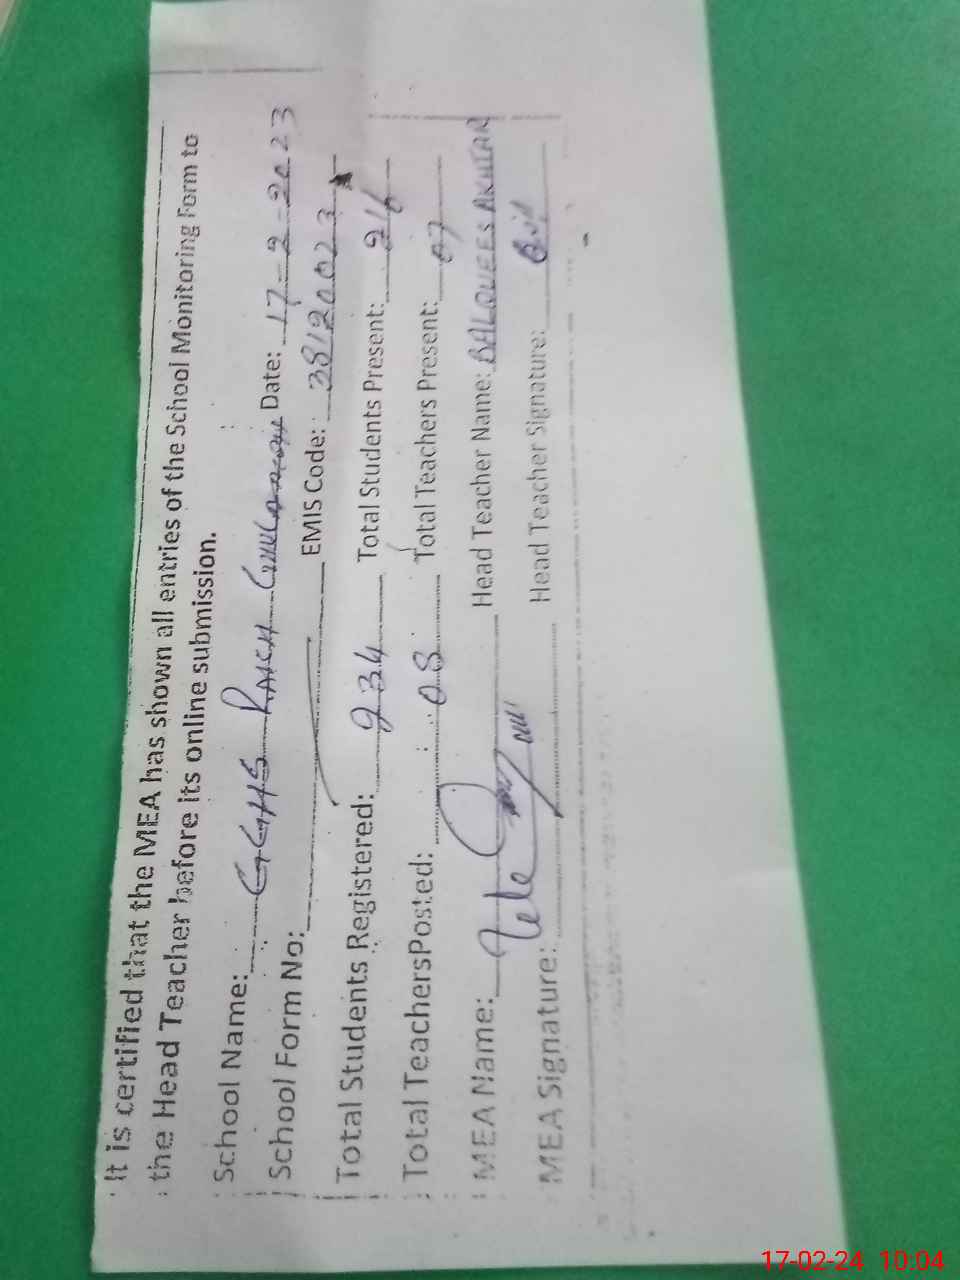 It is certified that the MEA has shown all entries of the School Monitoring Form to
the Head Teacher before its online submission.
School Name: GGHS Date: 17-2-2023
School Form No: EMIS Code: 38120023
Total Students Registered: 234 Total Students Present: 216
Total TeachersPosted: 08 Total Teachers Present: 07
MEA Name: Head Teacher Name: BALQUEES AKHTAR
MEA Signature: Head Teacher Signature:
17-02-24 10:04